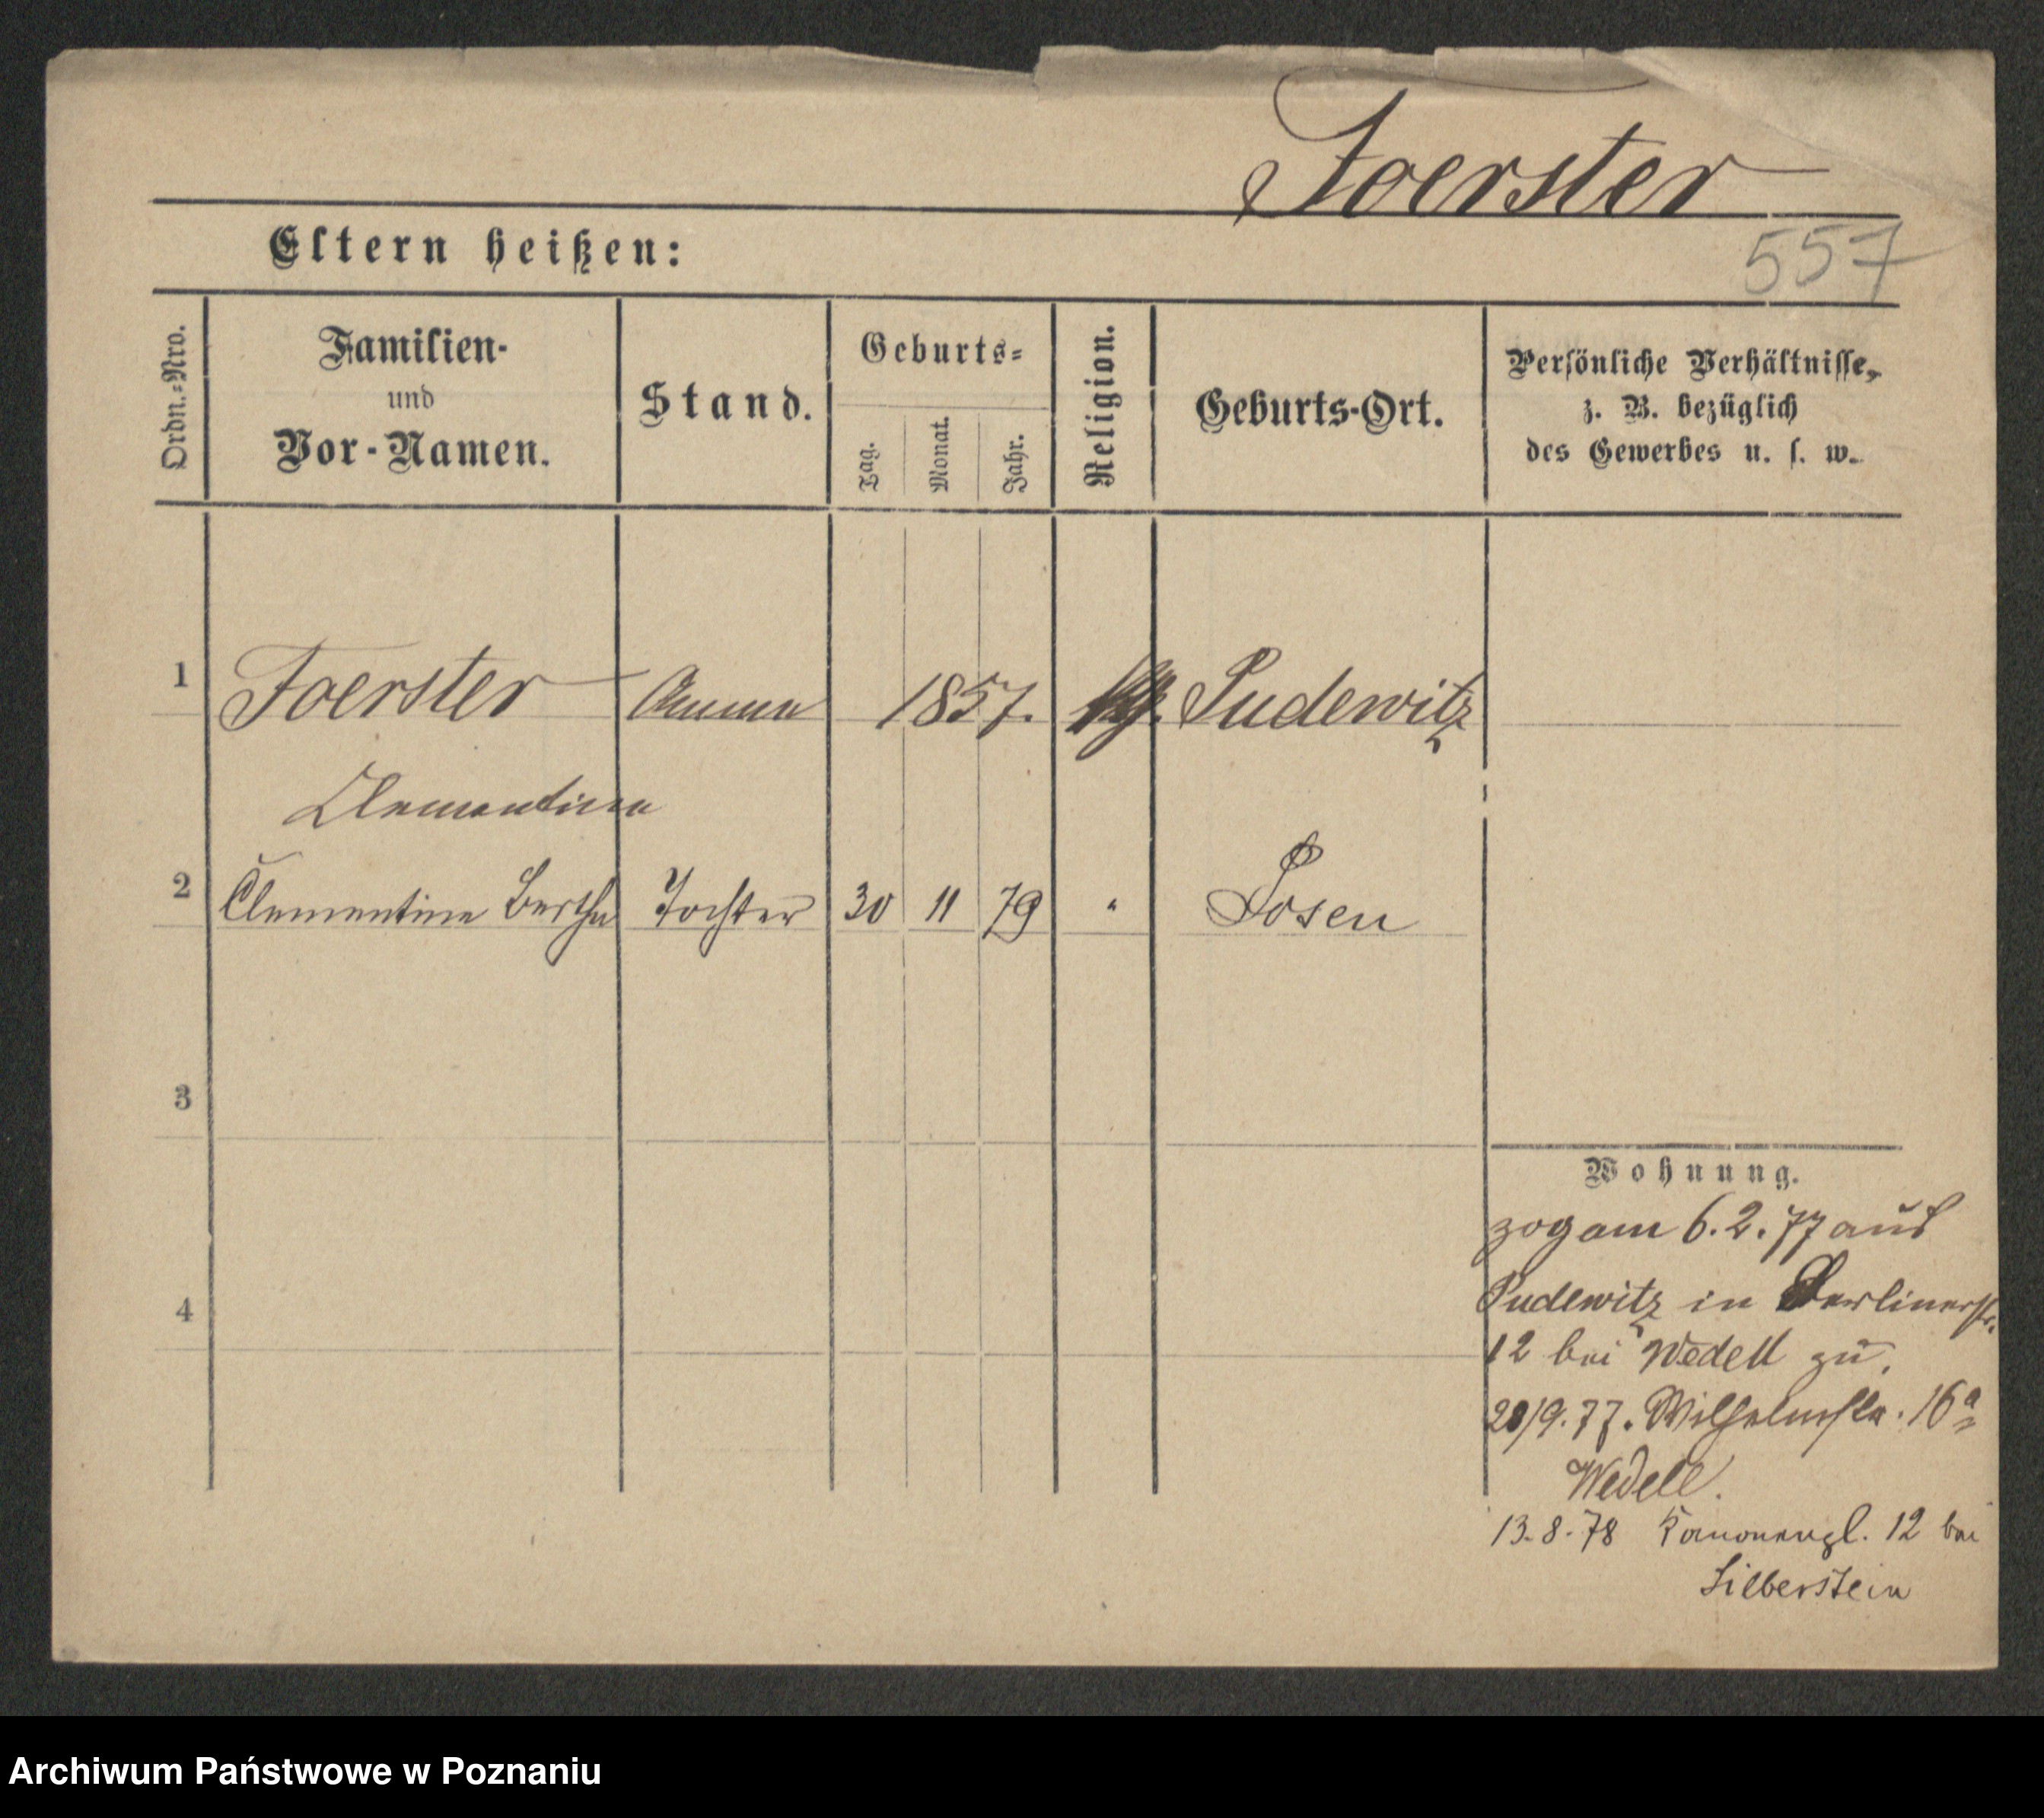 Foerster
557
Eltern heißen:
Ordn.=Nro.
Familien-
und
Vor-Namen.
Stand.
Geburts=
Tag.
Monat.
Jahr.
Religion.
Geburts-Ort.
Persönliche Verhältnisse,
z. B. bezüglich
des Gewerbes u. s. w.
1 Foerster Amme 1857. Pudewitz
Clementine
2 Clementine Bertha Tochter 30 11 79 " Posen
3
4
Wohnung.
zog am 6.2.77 aus
Pudewitz in Berlinerstr.
12 bei Wedell zu.
20/9.77. Wilhelmstr. 16a
Wedell.
13.8.78 Kanonenpl. 12 bei
Silberstein
Archiwum Państwowe w Poznaniu